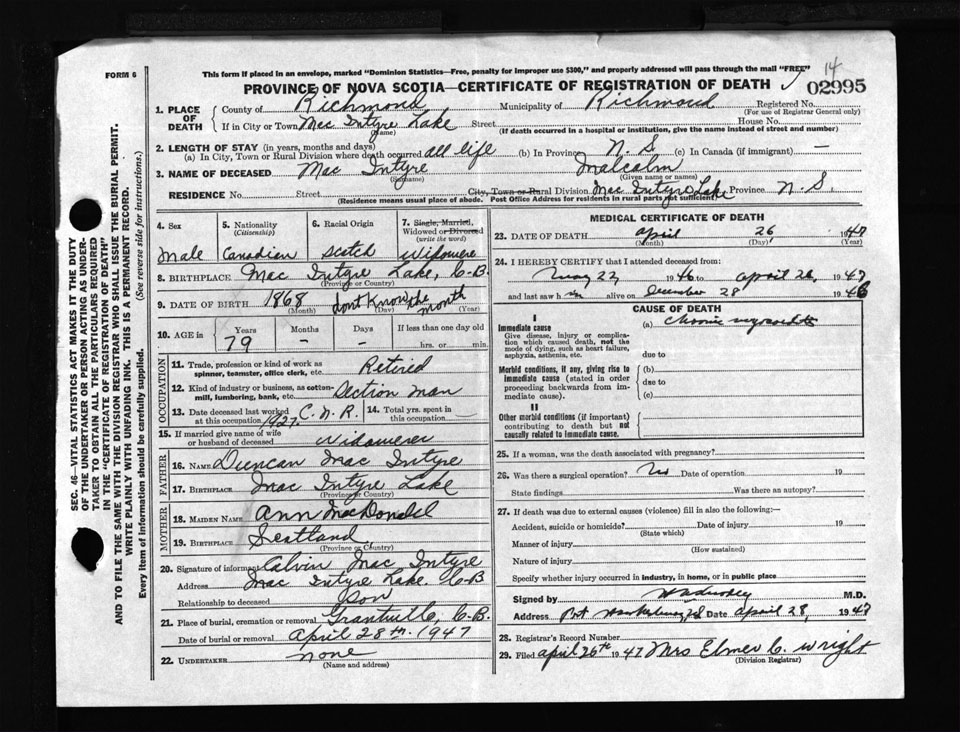 14
FORM 6
This form if placed in an envelope, marked "Dominion Statistics—Free, penalty for improper use $300," and properly addressed will pass through the mail "FREE"
PROVINCE OF NOVA SCOTIA—CERTIFICATE OF REGISTRATION OF DEATH 02995
1. PLACE OF DEATH County of Richmond Municipality of Richmond Registered No.
(For use of Registrar General only)
If in City or Town Mac Intyre Lake Street House No.
(Name) (If death occurred in a hospital or institution, give the name instead of street and number)
2. LENGTH OF STAY (in years, months and days)
(a) In City, Town or Rural Division where death occurred all life (b) In Province N. S (c) In Canada (if immigrant) —
3. NAME OF DECEASED Mac Intyre Malcolm
(Surname) (Given name or names)
RESIDENCE No. Street City, Town or Rural Division Mac Intyre Lake Province N. S.
(Residence means usual place of abode. Post Office Address for residents in rural parts not sufficient)
4. Sex
Male
5. Nationality
(Citizenship)
Canadian
6. Racial Origin
Scotch
7. Single, Married,
Widowed or Divorced
(write the word)
Widower
8. BIRTHPLACE Mac Intyre Lake, C-B.
(Province or Country)
9. DATE OF BIRTH 1868 dont Know the month
(Month) (Day) (Year)
10. AGE in
Years Months Days If less than one day old
79 – – hrs. or min.
OCCUPATION
11. Trade, profession or kind of work as
spinner, teamster, office clerk, etc. Retired
12. Kind of industry or business, as cotton-
mill, lumbering, bank, etc. Section man
13. Date deceased last worked
at this occupation 1927. C. N. R. 14. Total yrs. spent in
this occupation —
15. If married give name of wife
or husband of deceased Widower
FATHER
16. NAME Duncan Mac Intyre
17. BIRTHPLACE Mac Intyre Lake
(Province or Country)
MOTHER
18. MAIDEN NAME Ann MacDonald
19. BIRTHPLACE Scotland
(Province or Country)
20. Signature of informant Calvin Mac Intyre
Address Mac Intyre Lake C-B
Relationship to deceased Son
21. Place of burial, cremation or removal C-B.
Date of burial or removal April 28th. 1947
22. UNDERTAKER none
(Name and address)
MEDICAL CERTIFICATE OF DEATH
23. DATE OF DEATH April 26 1947
(Month) (Day) (Year)
24. I HEREBY CERTIFY that I attended deceased from:
May 22, 1946 to April 26, 1947
and last saw h im alive on December 28 1946
CAUSE OF DEATH
I
Immediate cause
Give disease, injury or complica-
tion which caused death, not the
mode of dying, such as heart failure,
asphyxia, asthenia, etc.
(a) Chronic myocarditis
due to
Morbid conditions, if any, giving rise to
immediate cause (stated in order
proceeding backwards from im-
mediate cause).
(b)
due to
(c)
II
Other morbid conditions (if important)
contributing to death but not
causally related to immediate cause.
25. If a woman, was the death associated with pregnancy?
26. Was there a surgical operation? No Date of operation 19
State findings Was there an autopsy?
27. If death was due to external causes (violence) fill in also the following:—
Accident, suicide or homicide? Date of injury 19
(State which)
Manner of injury
(How sustained)
Nature of injury
Specify whether injury occurred in industry, in home, or in public place
Signed by M.D.
Address Port Hawkesbury, NS Date April 28, 1947
28. Registrar's Record Number
29. Filed April 26th 1947 Mrs Elmer C. Wright
(Division Registrar)
SEC. 46—VITAL STATISTICS ACT MAKES IT THE DUTY
OF THE UNDERTAKER OR PERSON ACTING AS UNDER-
TAKER TO OBTAIN ALL THE PARTICULARS REQUIRED
IN THE "CERTIFICATE OF REGISTRATION OF DEATH"
AND TO FILE THE SAME WITH THE DIVISION REGISTRAR WHO SHALL ISSUE THE BURIAL PERMIT.
WRITE PLAINLY WITH UNFADING INK. THIS IS A PERMANENT RECORD.
Every item of information should be carefully supplied. (See reverse side for instructions.)